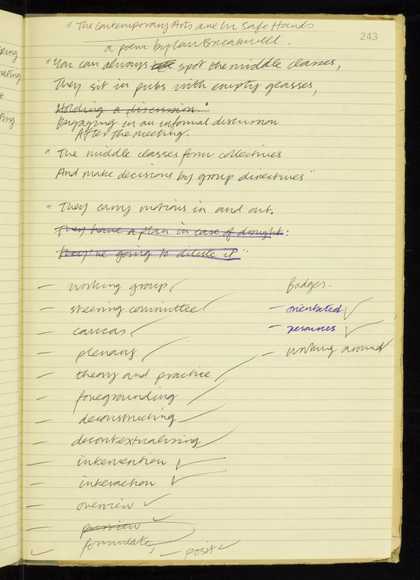 "The Contemporary Arts are In Safe Hands
243
a poem by Ian Breakwell.
"You can always spot the middle classes,
They sit in pubs with empty glasses,
Holding a discussion."
Engaging in an informal discussion
After the meeting.
" The middle classes form collectives
And make decisions by group directives"
" They carry motions in and out.
They have a plan in case of drought:
They're going to dilute it"
— working group ✓
Badges.
— steering committee ✓
— orientated ✓
— caucus ✓
— resources ✓
— plenary ✓
— working around ✓
— theory and practice ✓
— foregrounding ✓
— deconstructing ✓
— decontextualising ✓
— intervention ✓
— interaction ✓
— overview ✓
— purview
formulate, — posit ✓